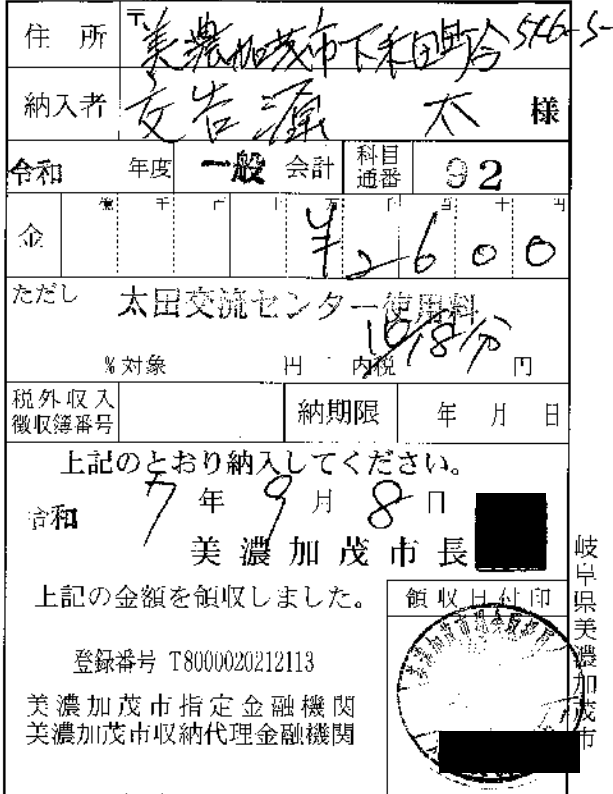 住所 〒 美濃加茂市下米田町
納入者 太 様
令和 年度 一般 会計 科目通番 92
億 千 百 十 万 千 百 十 円
金 ¥2600
ただし 太田交流センター使用料
10/18分
%対象 円 内税 円
税外収入徴収簿番号 納期限 年 月 日
上記のとおり納入してください。
令和 7年 9月 8日
美濃加茂市長
上記の金額を領収しました。
領収日付印
登録番号 T8000020212113
美濃加茂市指定金融機関
美濃加茂市収納代理金融機関
岐阜県美濃加茂市